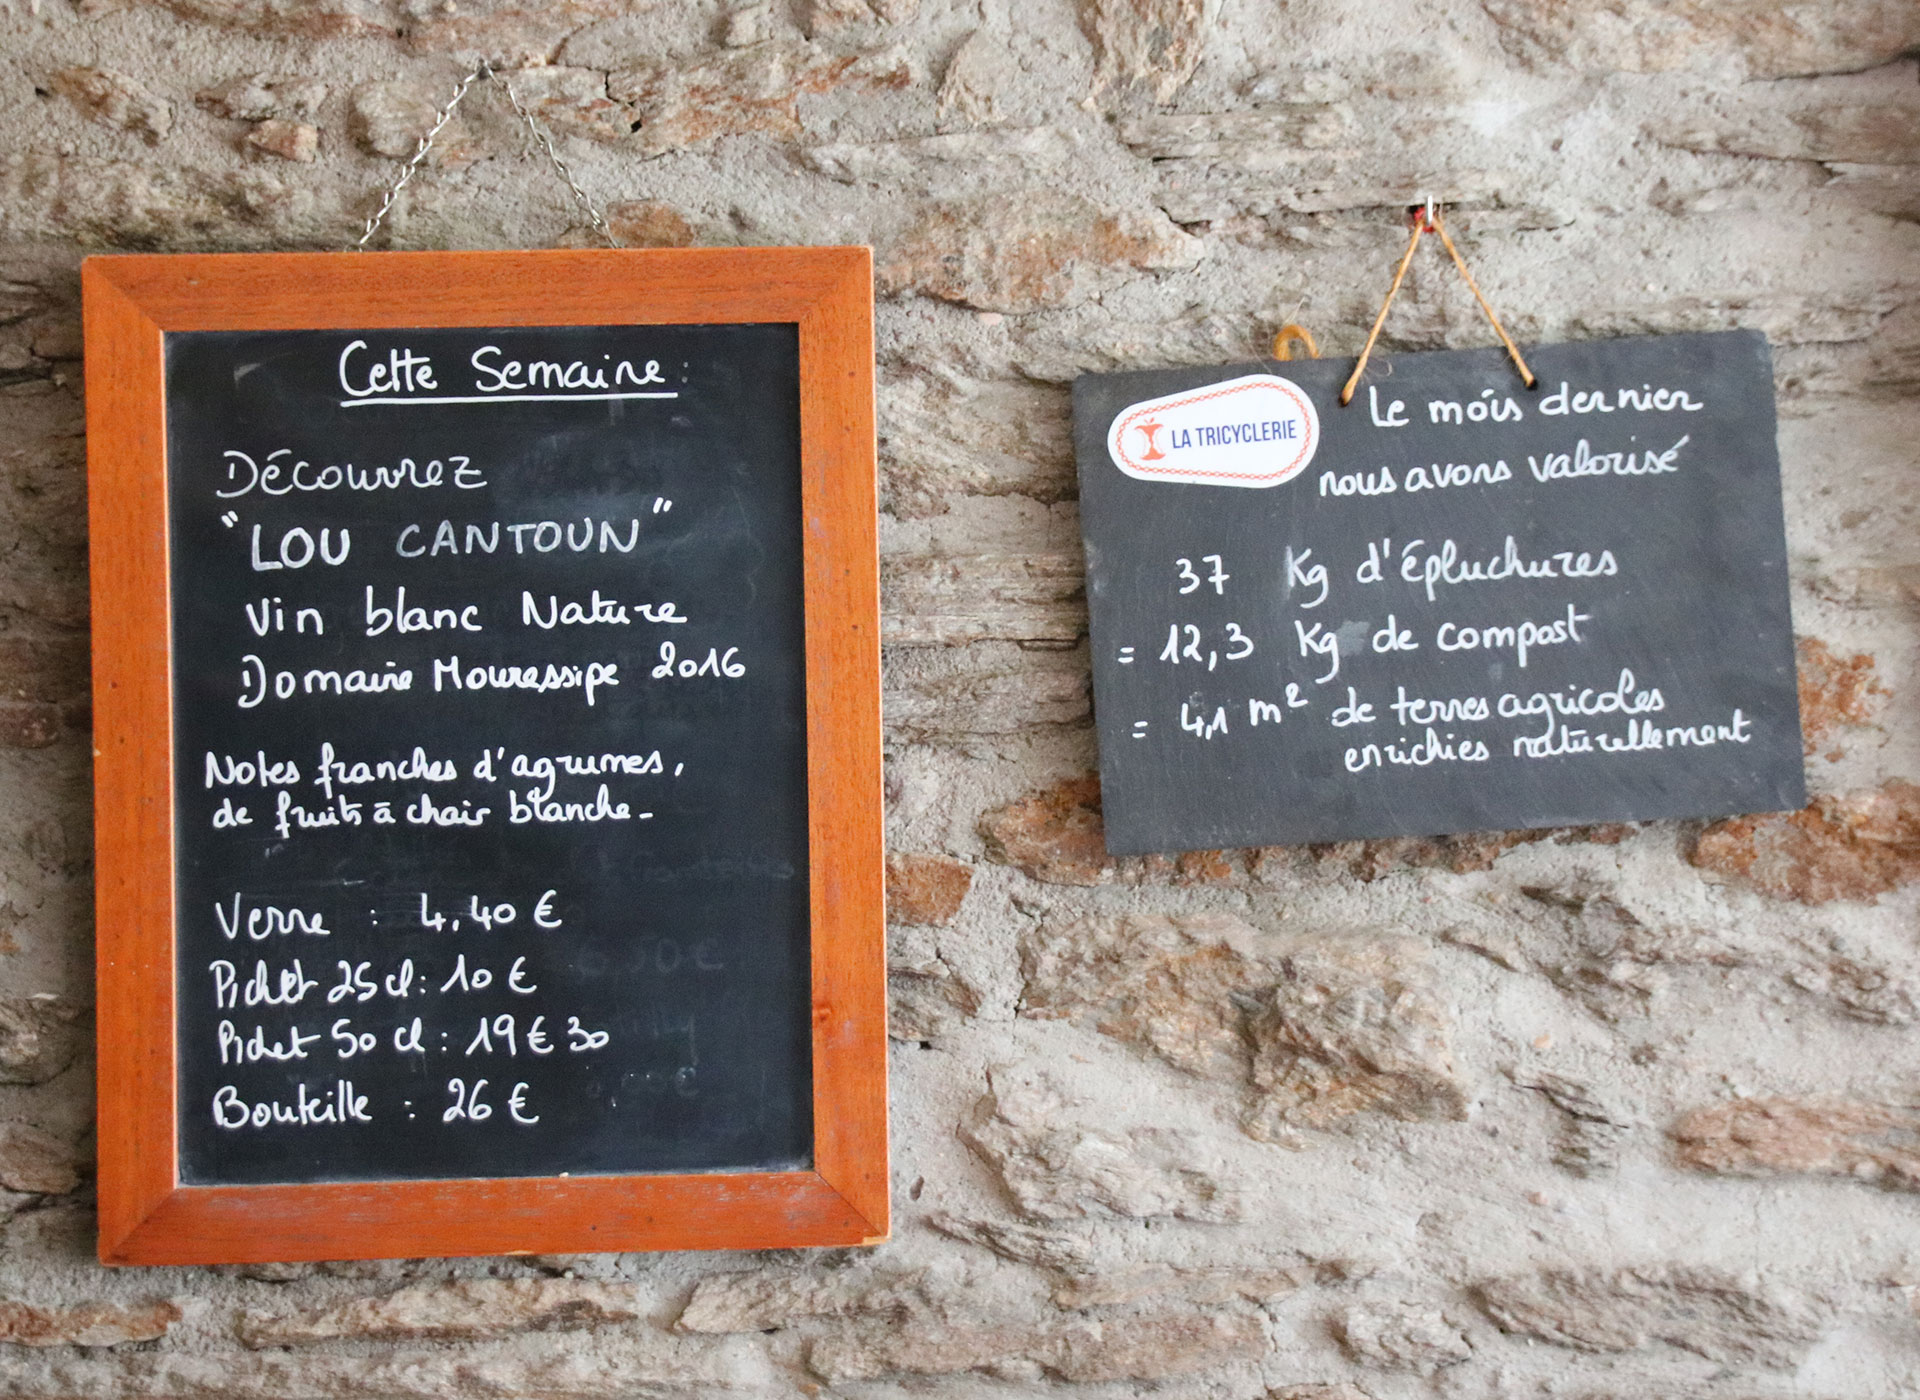 Cette Semaine :
Découvrez
"LOU CANTOUN"
Vin blanc Nature
Domaine Mouressipe 2016
Notes franches d'agrumes,
de fruits à chair blanche-
Verre : 4,40 €
Pichet 25 cl : 10 €
Pichet 50 cl : 19 € 30
Bouteille : 26 €
LA TRICYCLERIE
Le mois dernier
nous avons valorisé
37 Kg d'épluchures
= 12,3 Kg de compost
= 4,1 m² de terres agricoles
enrichies naturellement